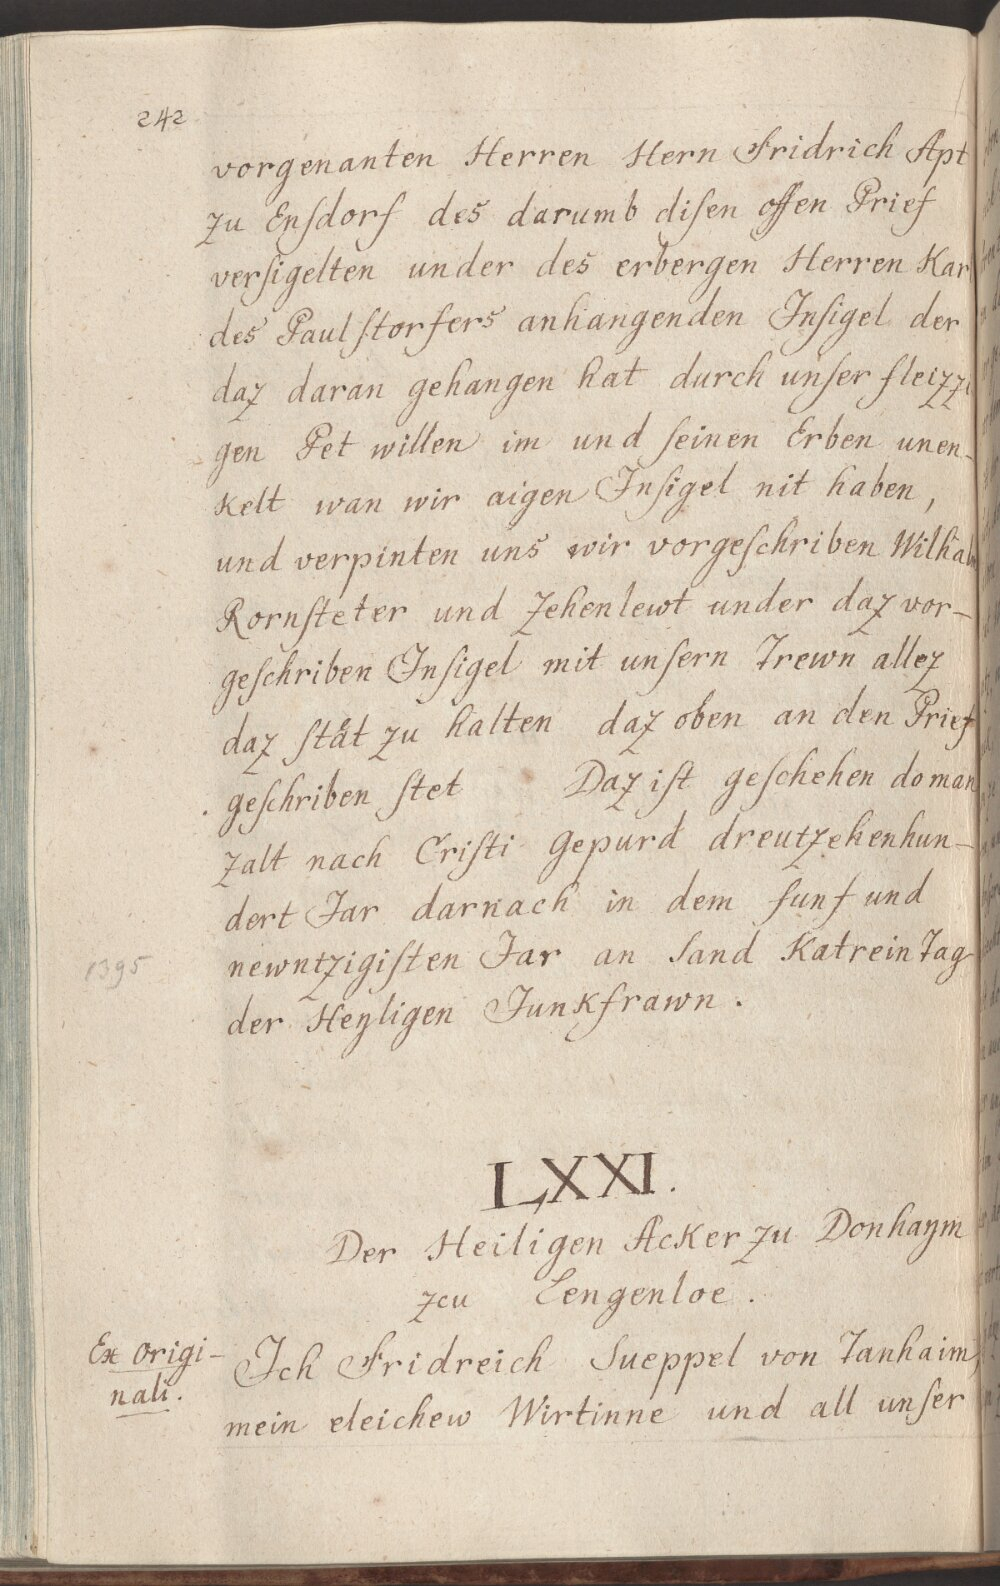 242
vorgenanten Herren Hern Fridrich Apt
zu Ensdorf des darumb disen offen Prief
versigelten under des erbergen Herren Kar
des Paulstorfers anhangenden Insigel der
daz daran gehangen hat durch unser fleizzi
gen Pet willen im und seinen Erben unen-
kelt wan wir aigen Insigel nit haben,
und verpinten uns wir vorgeschriben Wilhalm
Rornsteter und Zehenlewt under daz vor-
geschriben Insigel mit unsern Trewn allez
daz ståt zu halten daz oben an den Prief
geschriben stet Daz ist geschehen do man
zalt nach Cristi gepurd dreutzehenhun-
dert Jar darnach in dem funf und
newntzigisten Jar an Sand Katrein Tag
1395
der Heyligen Junkfrawn.
LXXI.
Der Heiligen Acker zu Donhaym
zcu Lengenloe.
Ex origi-
nali.
Ich Fridreich Sueppel von Tanhaim
mein eleichew Wirtinne und all unser